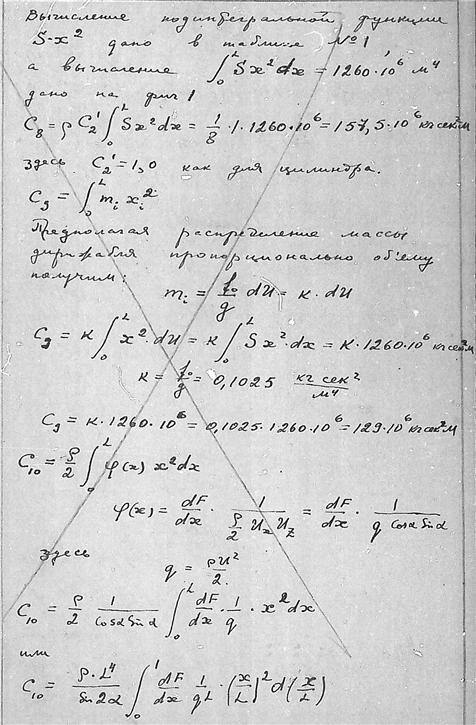 Вычисление подинтегральной функции
S·x² дано в таблице №1,
а вычисление ∫₀ᴸ Sx²dx = 1260·10⁶ м⁴
дано на фиг 1
C₈ = ρ C₂' ∫₀ᴸ Sx²dx = 1/8 · 1 · 1260·10⁶ = 157,5·10⁶ кг сек² м
здесь C₂' = 1,0 как для цилиндра.
C₉ = ∫₀ᴸ mᵢ xᵢ²
Предполагая распределение массы
дирижабля пропорционально объему
получим:
mᵢ = f₀/g dU = к · dU
C₉ = к ∫₀ᴸ x²·dU = к ∫₀ᴸ S x²·dx = к·1260·10⁶ кг сек² м
к = f₀/g = 0,1025 кг сек²/м⁴
C₉ = к·1260·10⁶ = 0,1025·1260·10⁶ = 129·10⁶ кг сек² м
C₁₀ = ρ/2 ∫₀ᴸ φ(x) x²dx
φ(x) = dF/dx · 1/(ρ/2 Uₓ U_z) = dF/dx · 1/(q cosα Sinα)
здесь q = ρU²/2.
C₁₀ = ρ/2 1/(cosα Sinα) ∫₀ᴸ dF/dx · 1/q · x²dx
или
C₁₀ = ρ·L⁴/(Sin2α) ∫₀¹ dF/dx 1/(qL) · (x/L)² d(x/L)